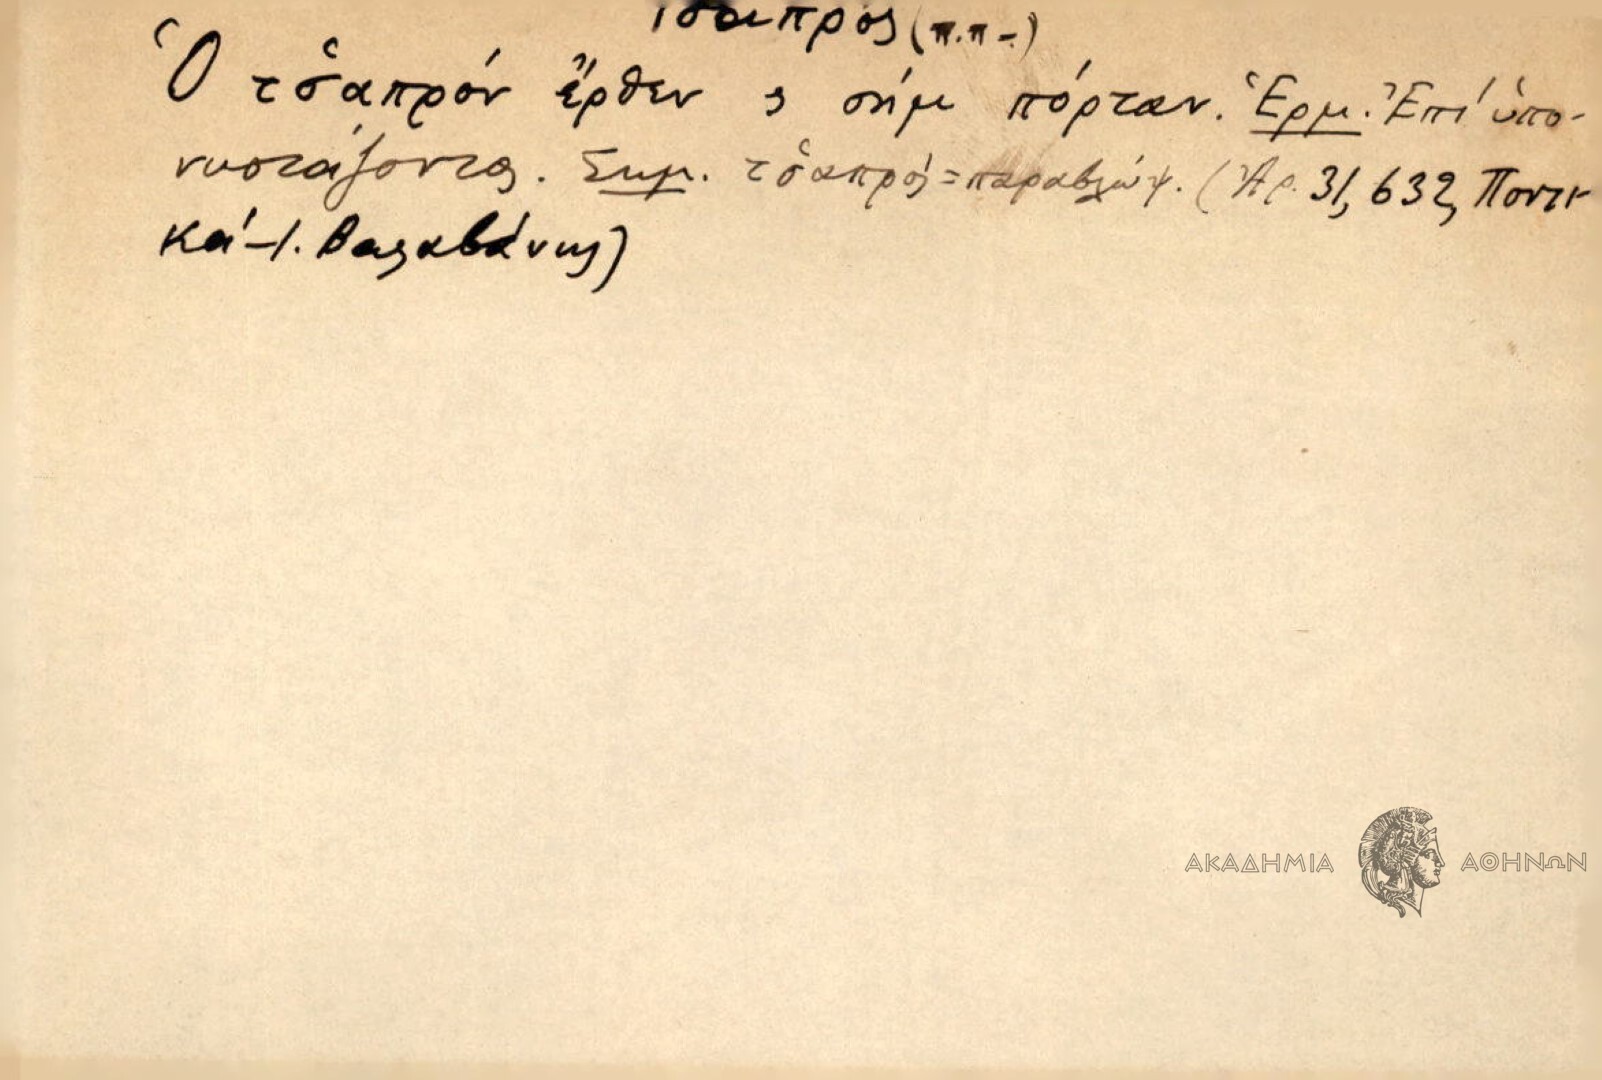 τσαπρός (π.π-)
Ὁ τσ̌απρόν ἔρθεν ς σήμ πόρταν. Ἑρμ. Ἐπί ὑπο-
νυστάζοντος. Σημ. τσ̌απρός=παραβλώψ. (Ἀρ. 31, 632, Ποντι-
κά-Ι. Βαλαβάνης)
ΑΚΑΔΗΜΙΑ ΑΘΗΝΩΝ